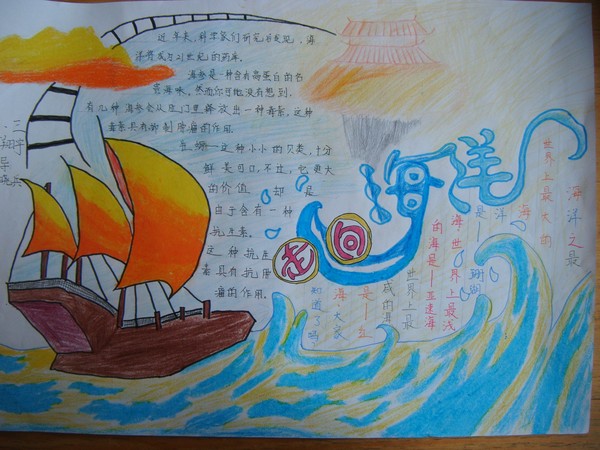 近年来，科学家们研究发现，海
洋将成为21世纪的药库。
海参是一种含有高蛋白的名
贵海味，然而你可能没有想到，
有几种海参会从肛门里释放出一种毒素，这种
毒素具有抑制肿瘤的作用
牡蛎一这种小小的贝类，十分
鲜美可口，不过，它更大
的价值却是
由于含有一种
抗生素。
这种抗生
素具有抗肿
瘤的作用。
走向海洋
海洋之最
世界上最大的
海
洋
是一珊瑚
海世界上最浅
的海是一亚速海
世界上最
咸的海
是一红
海大家
知道了吗